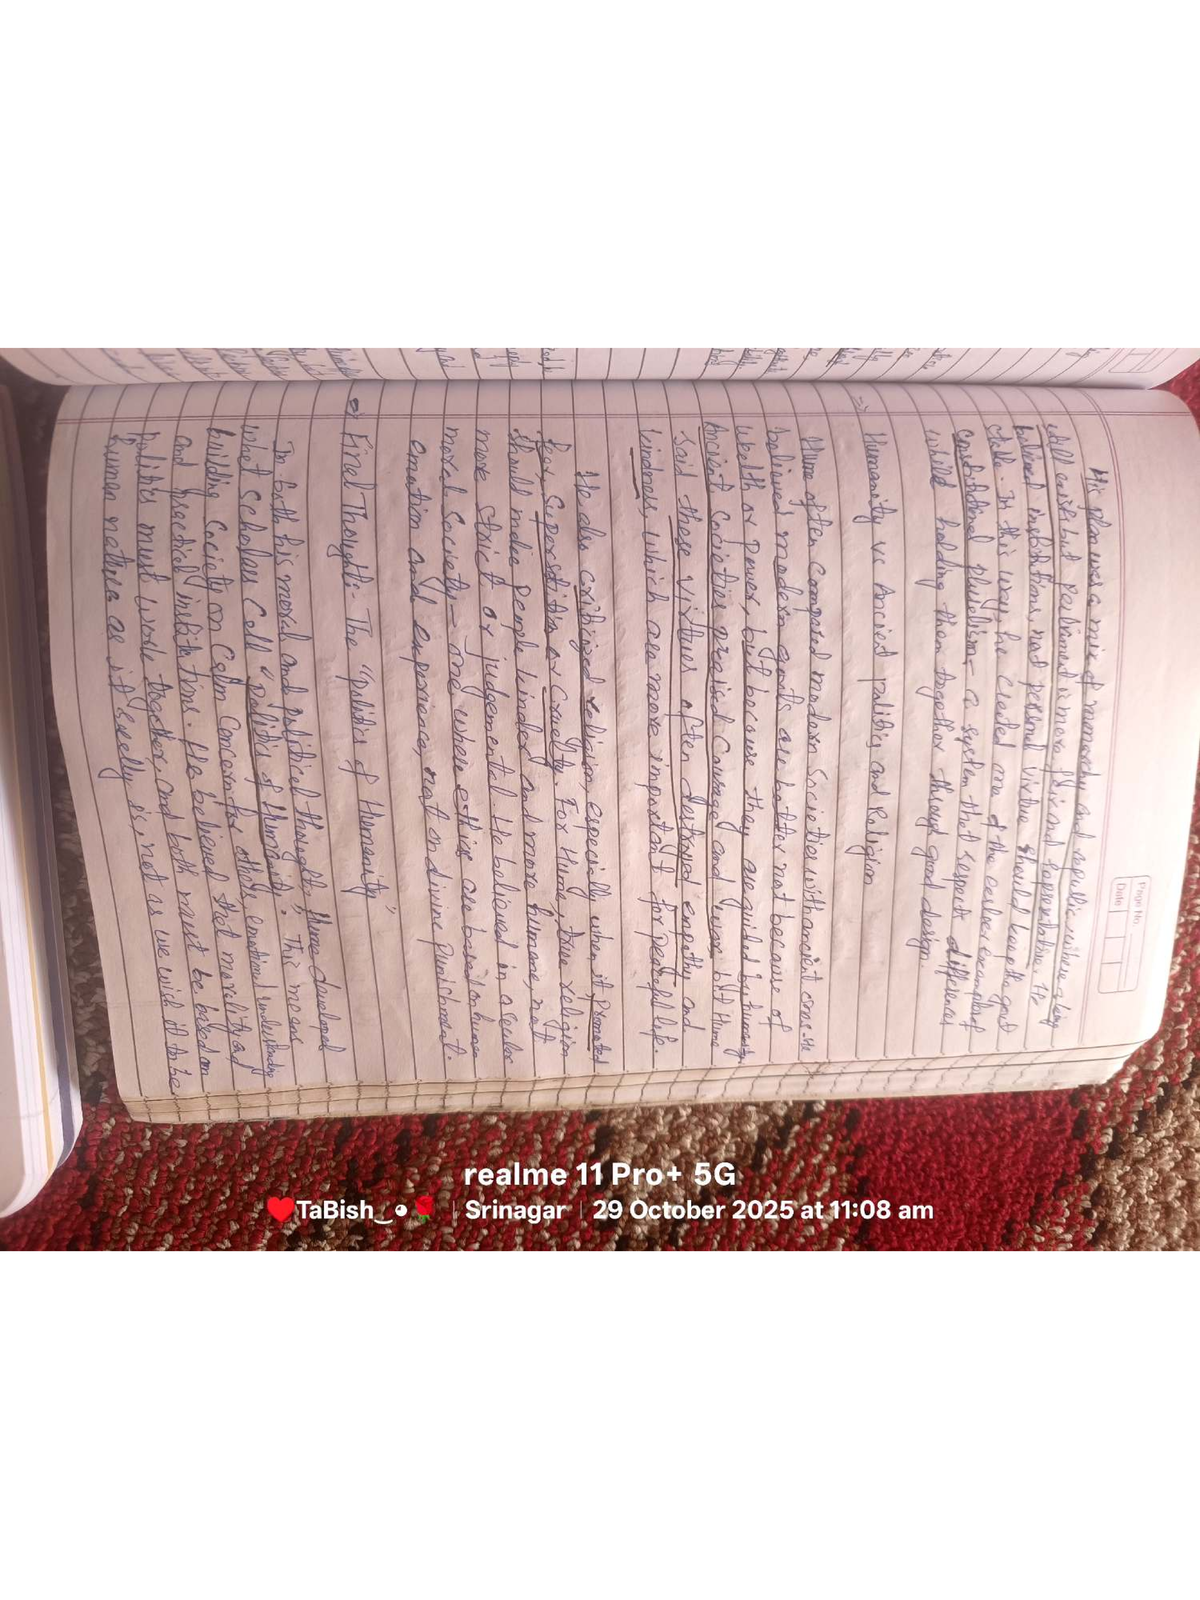 Page No.
Date
His plan was a mix of monarchy and republic, where a king
still exist but parliament is more fair and representative. He
believed institutions, not personal virtue should keep the govt
stable. In this way, he created one of the earliest examples of
constitutional pluralism - a system that respect differences
whild holding them together through good design.
=> Humanity vs Ancient politics and Religion
Hume often compared modern societies with ancient ones. He
believed modern govts are better not because of
wealth or power, but because they are guided by humanity
Ancient societies praised courage and but Hume
said these virtues often destroyed empathy and
kindness, which are more important for peaceful life.
He also critized religion, especially when it promoted
fear, superstition or cruelty. For Hume, true religion
should make people kinder and more humane, not
more strict or judgemental. He believed in a secular
moral society - one where ethics are based on human
emotion and experience, not on divine punishment.
Final Thought:- The "politics of Humanity"
In both his moral and political thoughts, Hume developed
what scholars call "politics of Humanity". This means
building society on calm concern for others, emotional understanding
and practical institutions. He believed that morality and
politics must work together, and both must be based on
human nature as it really is, not as we wish it to be
realme 11 Pro+ 5G
❤️TaBish‿◕🌹 | Srinagar | 29 October 2025 at 11:08 am